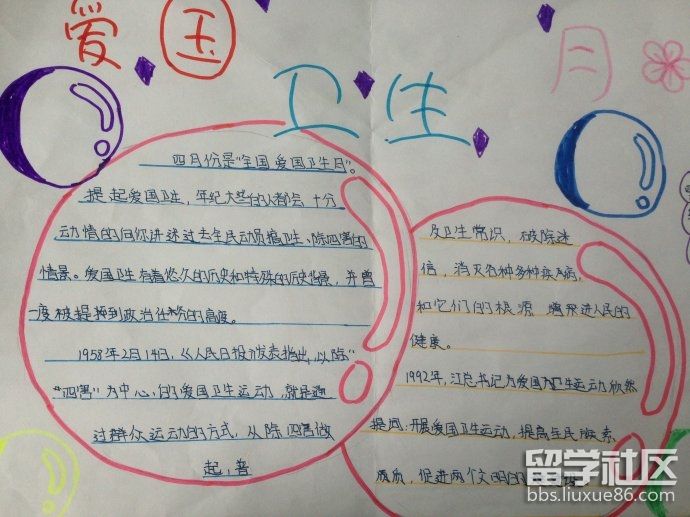 爱国
卫生
月
四月份是“全国爱国卫生月”。
提起爱国卫生，年纪大些的人都会十分
动情的向你讲述过去全民动员搞卫生、除四害的
情景。爱国卫生有着悠久的历史和特殊的历史背景，并曾
一度被提拔到政治任务的高度。
1958年2月14日，《人民日报》发表指出，以除“
“四害”为中心，的爱国卫生运动，就是通
过群众运动的方式，从除四害做
起，普
及卫生常识，破除迷
信，消灭各种多种疾病，
和它们的根源，增进人民的
健康。
1992年，江总书记为爱国卫生运动欣然
提词：开展爱国卫生运动，提高全民族素
质，促进两个文明的
留学社区
bbs.liuxue86.com